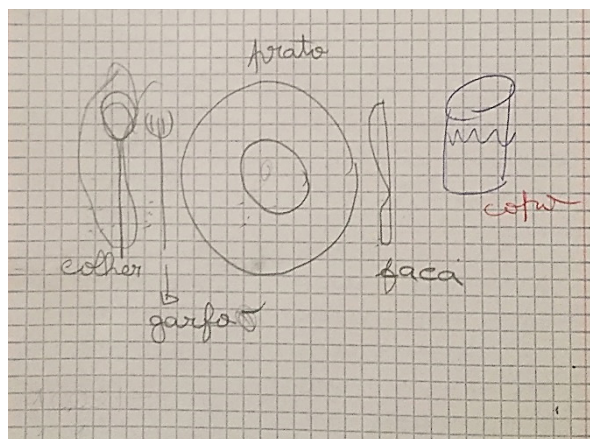 prato
colher
garfo
faca
copo